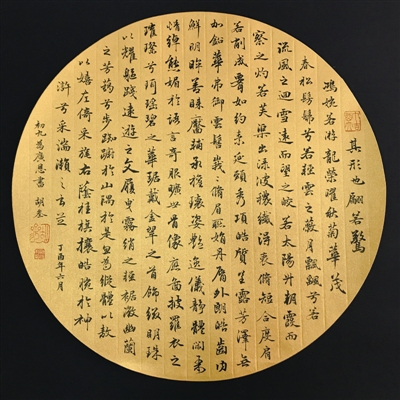 其形也翩若驚
鴻婉若游龍榮耀秋菊華茂
春松髣髴兮若輕雲之蔽月飄飖兮若
流風之迴雪遠而望之皎若太陽升朝霞而
察之灼若芙蕖出淥波襛纖得衷脩短合度肩
若削成如約素延頸秀項皓質呈露芳澤無
加鉛華弗御雲髻峩峩脩眉聯娟丹脣外朗皓齒内
鮮明眸善睞靨輔承權瓌姿艷逸儀靜體閑柔
情綽態媚於語言奇服曠世骨像應圖披羅衣之
璀粲兮珥瑤碧之華琚戴金翠之首飾綴明珠
以耀軀踐遠遊之文履曳霧綃之輕裾微幽蘭
之芳藹兮步踟躕於山隅於是忽焉縱體以敖
以嬉左倚采旄右蔭桂旗攘皓腕於神
滸兮采湍瀨之玄芝
初九爲廣恩書 胡奎
丁酉年六月